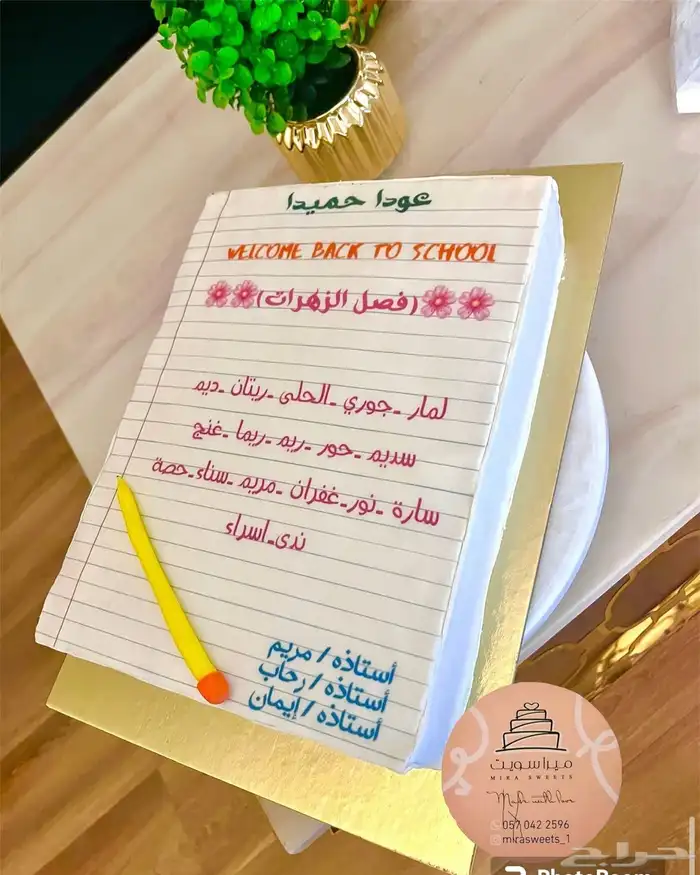 عودا حميدا
WELCOME BACK TO SCHOOL
(فصل الزهرات)
لمار _جوري _الحلى _ريتان _ديم
سديم _حور _ريم _ريما _غنج
سارة _نور_غفران _مريم _سناء_حصة
ندى_اسراء
أستاذه / مريم
أستاذه / رحاب
أستاذه / إيمان
ميرا سويت
MIRA SWEETS
Made with love
057 042 2596
mirasweets_1
حراج
PhotoRoom